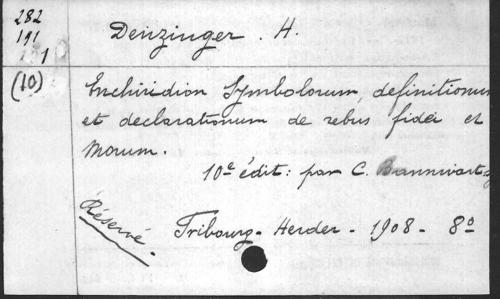 282
191
1
Denzinger. H.
(10)
Enchiridion Symbolorum, definitionum
et declarationum de rebus fidei et
Morum.
10e édit: par C. Bannwart
Réservé.
Fribourg - Herder - 1908 - 8o